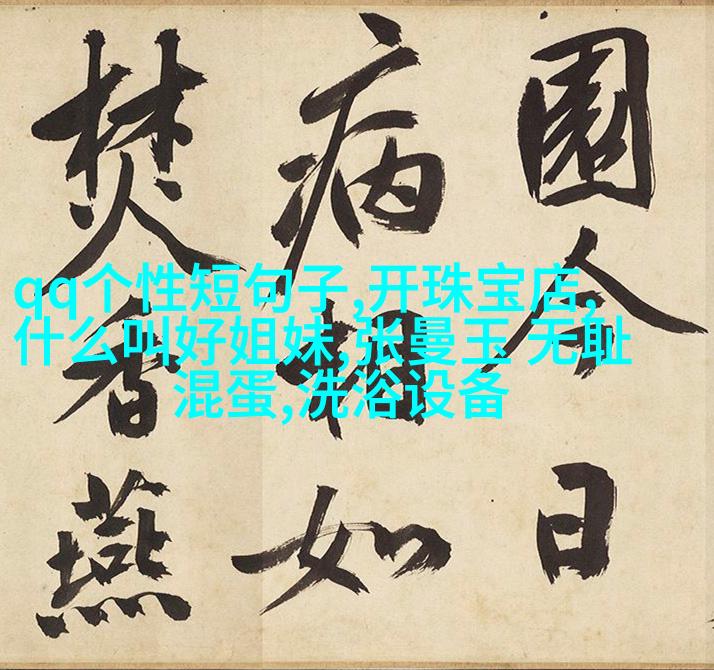 園今日
病相如
焚香燕
qq个性短句子,开珠宝店,
什么叫好姐妹,张曼玉 无耻
混蛋,洗浴设备